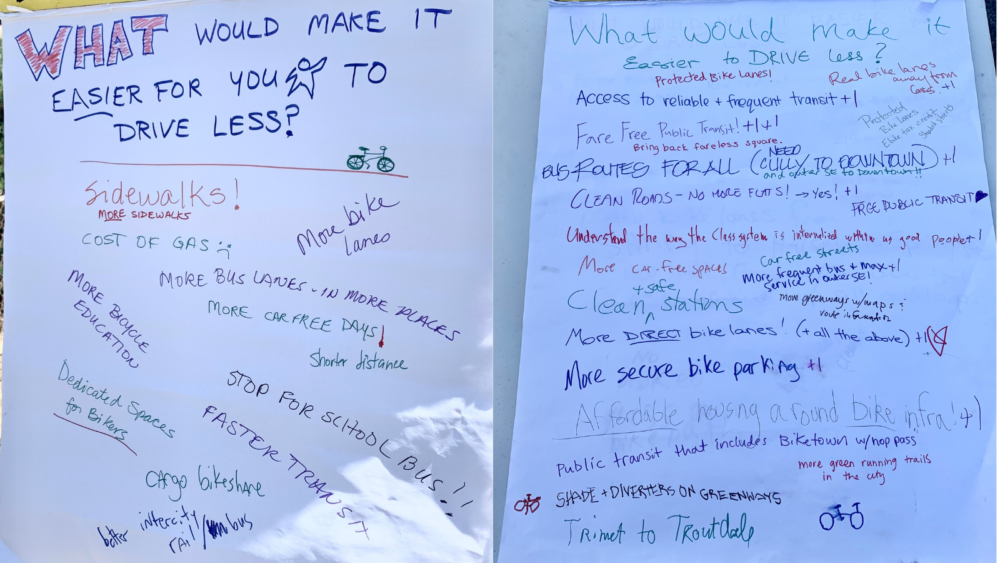 WHAT WOULD MAKE IT
EASIER FOR YOU TO
DRIVE LESS?
Sidewalks!
MORE SIDEWALKS
More bike
lanes
COST OF GAS :(
MORE BUS LANES - IN MORE PLACES
MORE BICYCLE
EDUCATION
MORE CAR FREE DAYS!
Shorter distance
Dedicated Spaces
for Bikers
STOP FOR SCHOOL BUS!!
FASTER TRANSIT
CARGO bikeshare
better intercity
rail/bus
What would make it
Easier to DRIVE Less?
Protected Bike Lanes!
Real bike lanes
away form
cars +1
Access to reliable + frequent transit +1
Protected
Bike Lanes
Fare Free Public Transit! +1 +1
Bring back fareless square.
NEED
BUS ROUTES FOR ALL (CULLY TO DOWNTOWN) +1
and outer SE to Downtown!!
CLEAN ROADS - NO MORE FLATS! → Yes! +1
FREE PUBLIC TRANSIT
Understand the way the class system is internalized within us good people +1
More car-free spaces
Car free streets
More frequent bus + max +1
service in outer SE!
+ safe
Clean stations
more greenways w/maps :
route information
More DIRECT bike lanes! (+ all the above) +1
More secure bike parking +1
Affordable housing around bike infra! +1
public transit that includes Biketown w/hop pass
more green running trails
in the city
SHADE + DIVERTERS ON GREENWAYS
Trimet to Troutdale